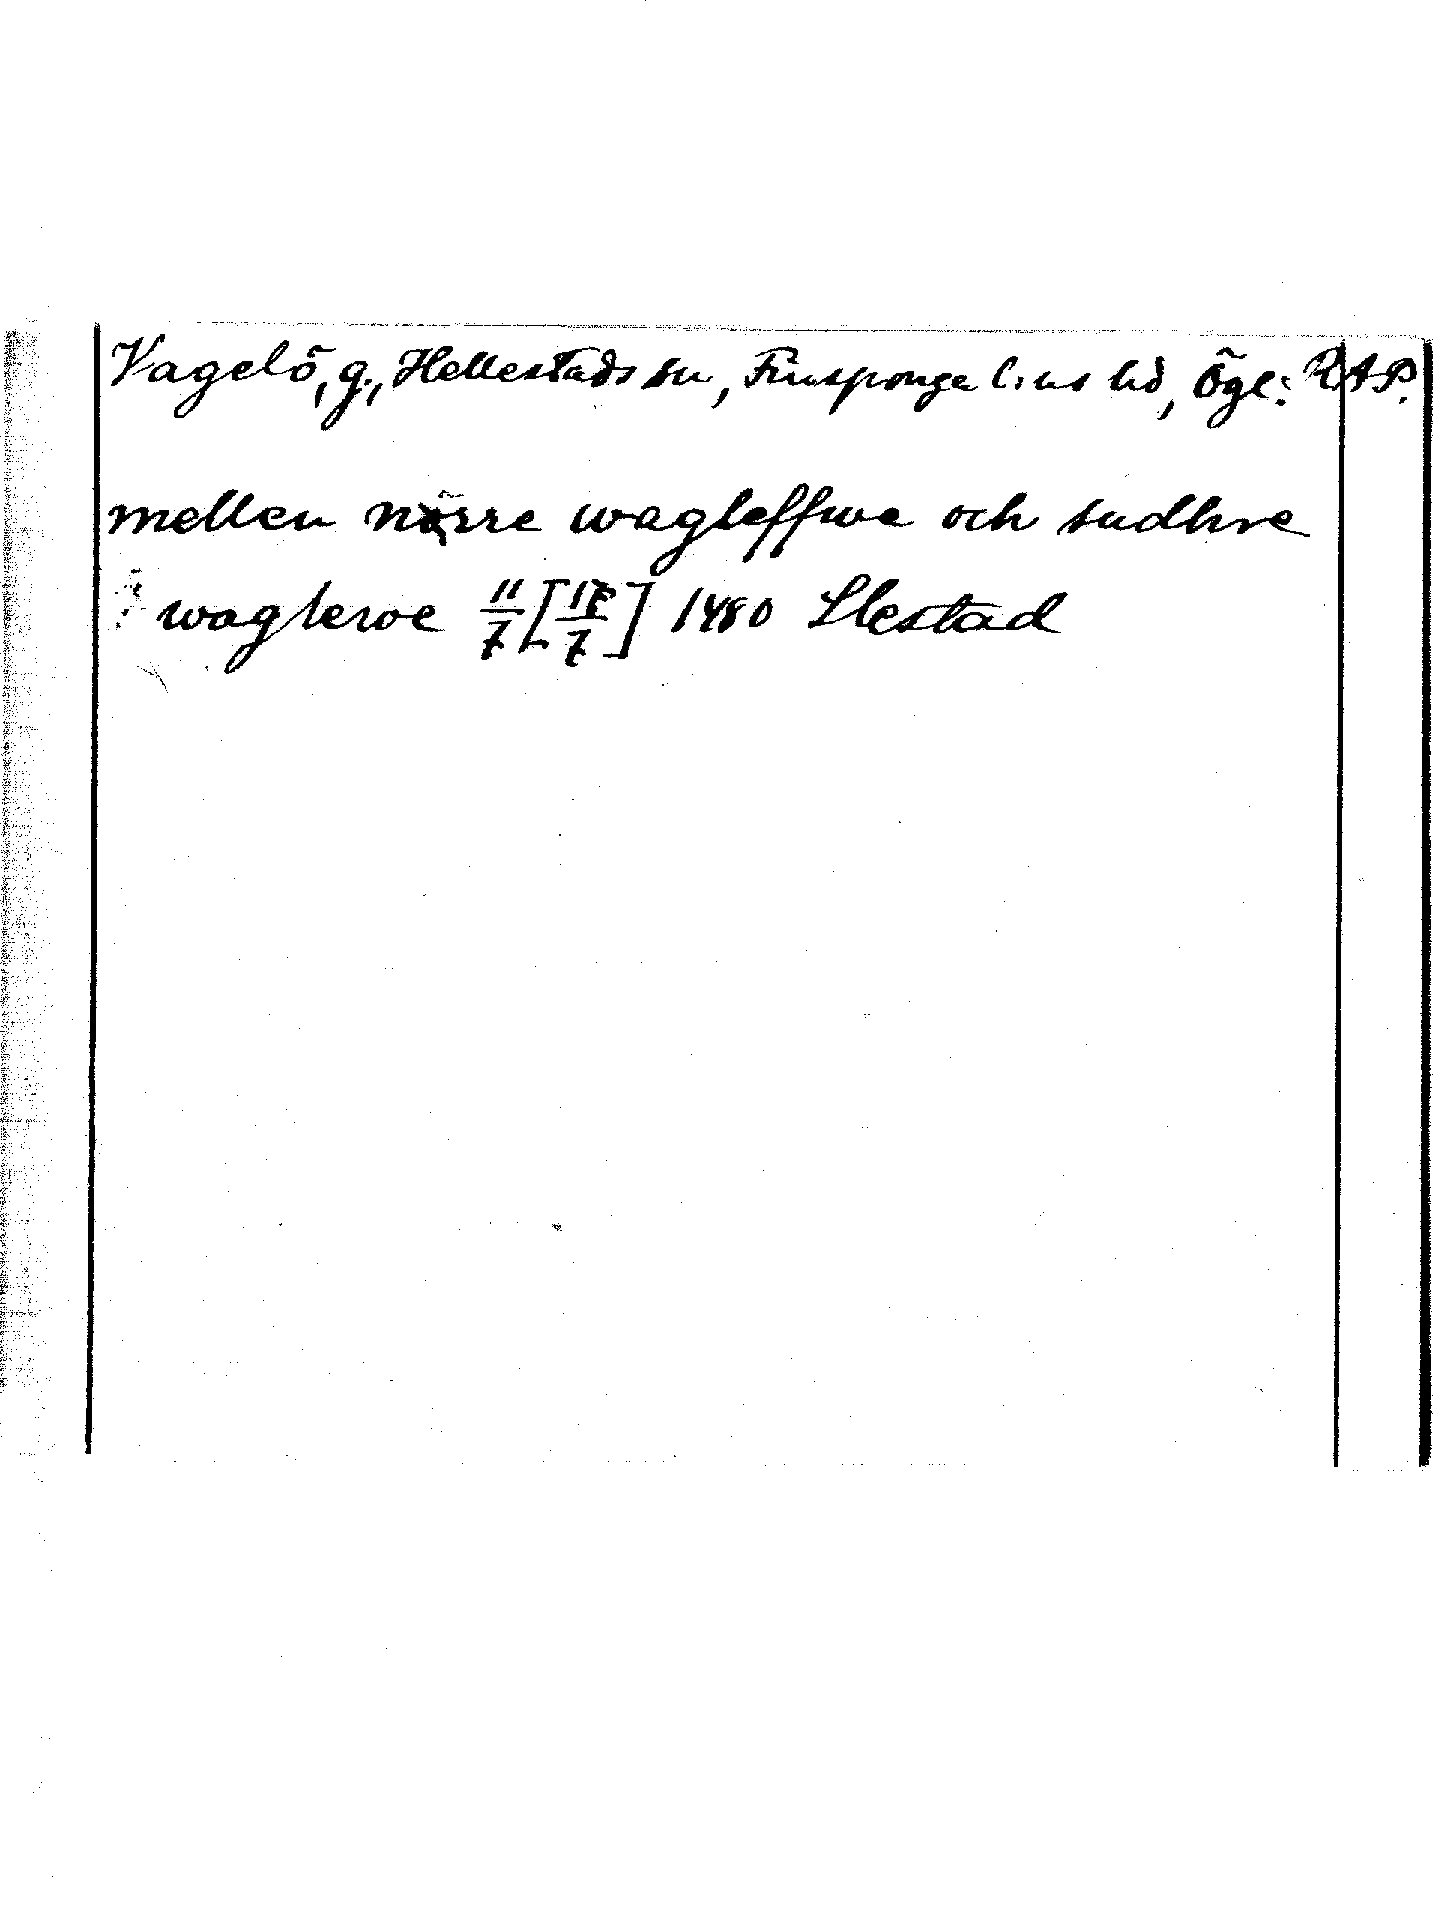 Vagelö, g., Hellestads sn, Finsponga l:ns hd, Ögl: RAP.
mellen nørre wagleffwe och sudhre
waglewe 11/7 [17/7] 1480 Slestad